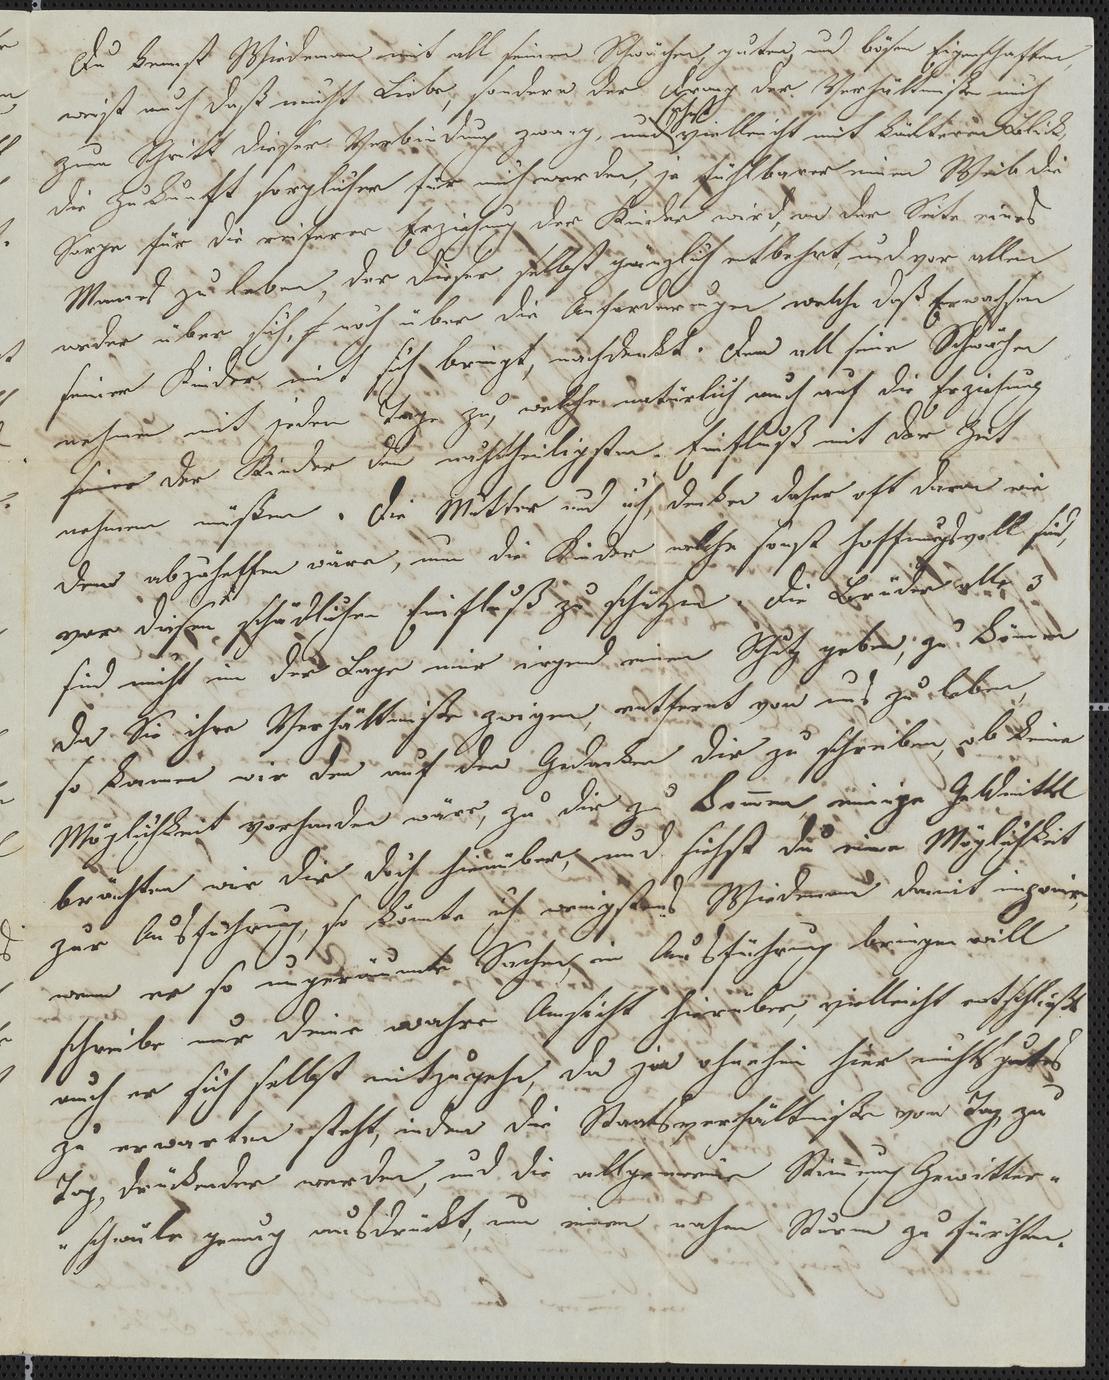 Du kennst Wiedemann mit all seinen Schwächen, guten, und bösen Eigenschaften,
weist auch daß nicht Liebe, sondern der Drang der Verhältniße mich
zum Schritt dieser Verbindung zwang, und vielleicht mit kälterem Blick,
die Zukunft sorglicher für mich werden, ja fühlbarer einem Weib die
Sorge für die reiferer Erziehung der Kinder wird, an der Seite eines
Mannes zu leben, der dieser selbst gänzlich entbehrt, und vor allem
weder über sich, noch über die Anforderungen welche daß Erwachsen
seiner Kinder mit sich bringt, nachdenkt. Den all seine Schwächen
nehmen mit jedem Tage zu, welche natürlich auch auf die Erziehung
seiner der Kinder den nachtheiligsten Einfluß mit der Zeit
nehmen müßen. Die Mutter und ich, denken daher oft daran wie
dem abzuhelfen wäre, um die Kinder welche sonst hoffnungsvoll sind,
vor diesem schädlichen Einfluß zu schützen. Die Brüder alle 3
sind nicht in der Lage mir irgend einen Schutz geben, zu können
da Sie ihre Verhältniße zwingen, entfernt von uns zu leben,
so kamen wir den auf den Gedanken dir zu schreiben, ob keine
Möglichkeit vorhanden wäre, zu dir zu kommen, einige Geldmittel
brächten wir dir doch hinüber, und siehst du eine Möglichkeit
zur Ausführung, so könnte ich wenigstens Wiedemann damit
wenn er so ungeräumte Sachen, in Ausführung bringen will
schreibe mir deine wahre Ansicht hierüber, vielleicht entschließt
auch er sich selbst mitzugehn, da ja ohnehin hier nichts gutes
zu erwarten steht, indem die Staatsverhältniße von Tag, zu
Tag, drückender werden, und die allgemeine Stimmung Gewitter-
-schwüle genug ausdrückt, um einen nahen Sturm zu fürchten.